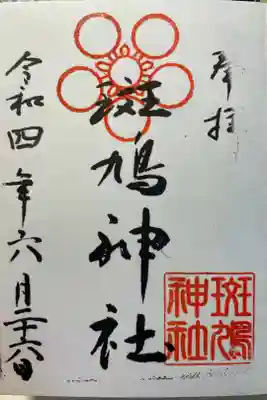 奉拝
斑鳩神社
斑鳩
神社
令和四年六月二十六日